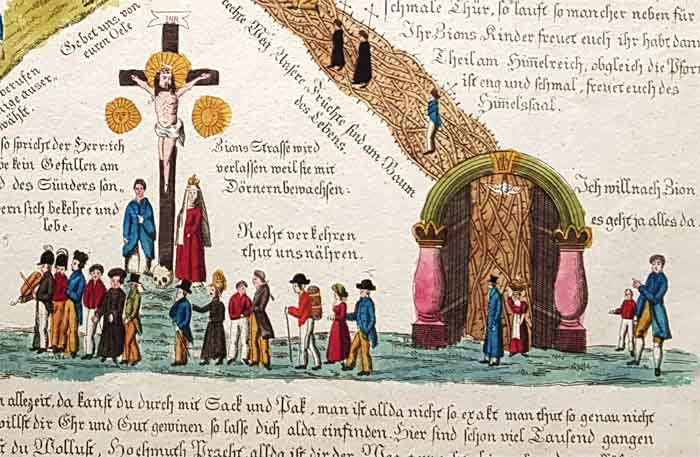 INRI
Gebet uns von
euren Oele
rechte Weg Unsere Früchte sind am Baum
des Lebens.
schmale Thür, so lauft so mancher neben für
Ihr Zions Kinder freuet euch ihr habt dan
Theil am Himelreich, obgleich die Pfor
ist eng und schmal, freuet euch des
Himelssaal.
berufen
nige auser
wählt.
so spricht der Herr ich
be kein Gefallen am
d des Sünders son„
dern sich bekehre und
lebe.
Zions Strasse wird
verlassen weil sie mit
Dörnern bewachsen:
Recht verkehren
thut uns nähren.
Ich will nach Zion
es geht ja alles da
allezeit, da kanst du durch mit Sack und Pak, man ist allda nicht so exakt man thut so genau nicht
willst dir Ehr und Gut gewinen so lasse dich alda einfinden. Hier sind schon viel Tausend gangen
st du Wollust, Hochmuth Pracht allda ist dir der